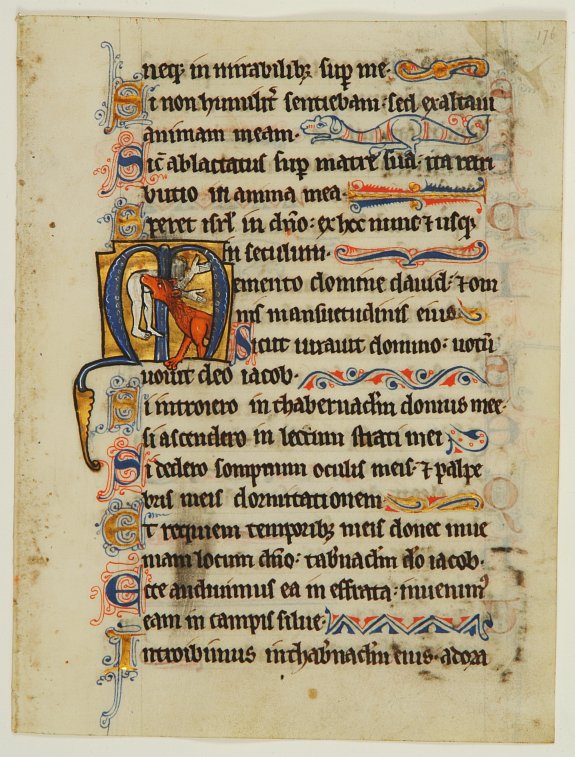 176
neq; in mirabilib; sup me.
Si non humilit sentiebam: sed exaltaui
animam meam.
Sic ablactatus sup matre sua: ita retri
butio in anima mea
Speret isrl in dno: ex hoc nunc ⁊ usq
in seculum.
Memento domine dauid: ⁊ om
nis mansuetudinis eius
Sicut iurauit domino: uotu
uouit deo iacob.
Si introiero in thabernaclm domus mee.
si ascendero in lectum strati mei
Si dedero sompnum oculis meis: ⁊ palpe
bris meis dormitationem
Et requiem temporib; meis donec inue
niam locum dno: tabnaclm do iacob.
Ecce audiuimus ea in effrata: inuenim
eam in campis silue.
Introibimus in thabnaclm eius. adora